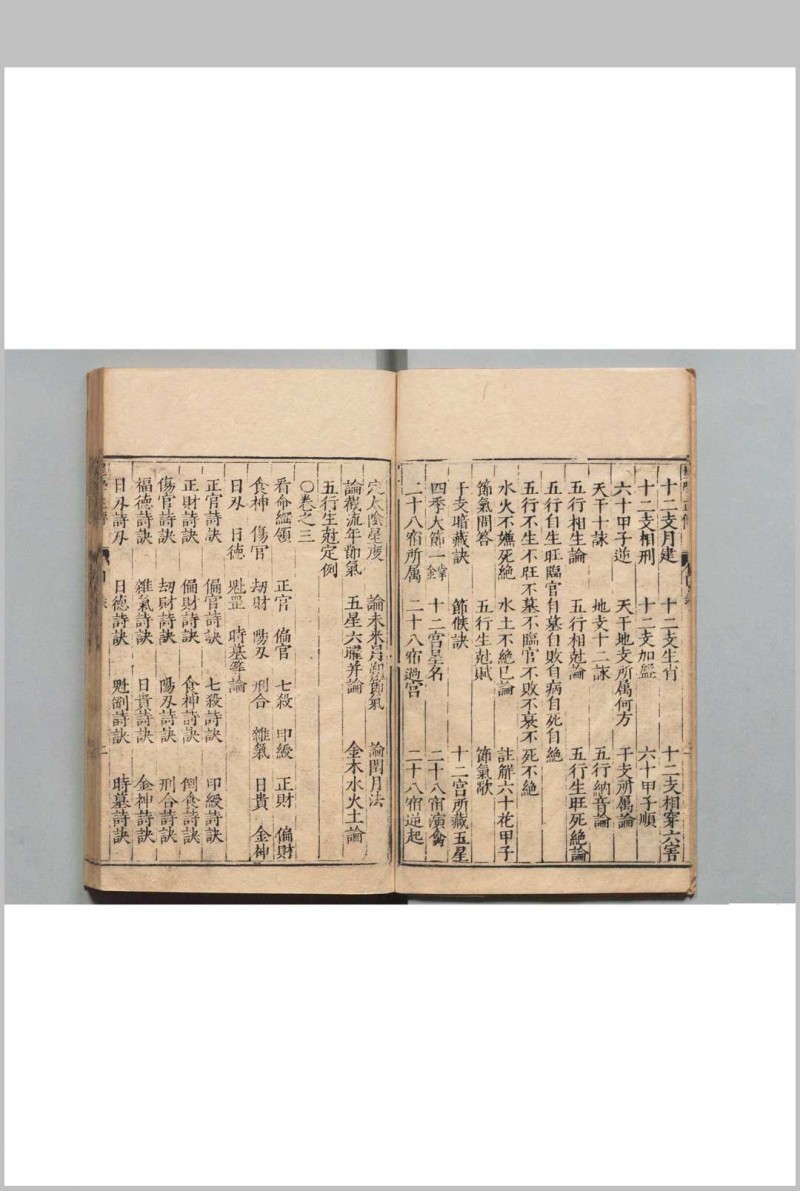 十二支月建 十二支生肖 十二支相穿六害
十二支相刑 十二支加盤 六十甲子順
六十甲子逆 天干地支所属何方 干支所属論
天干十詠 地支十二詠 五行納音論
五行相生論 五行相尅論 五行生旺死絶論
五行自生自旺臨官自墓自敗自病自死自絶
五行不生不旺不墓不臨官不敗不衰不死不絶
水火不嫌死絶 水土不絶巳論 註解六十花甲子
節氣問答 五行生尅賦 節氣歌
干支暗藏訣 節候訣 十二宮所藏五星
四季大節一 十二宮星名 二十八宿演禽
二十八宿所属 二十八宿過宮 二十八宿逆起
定太陰星度 論未来月朔節氣 論閏月法
論截流年節氣 五星六曜并論 金木水火土論
五行生尅定例
○卷之三
看命綱領 正官 偏官 七殺 印綬 正財 偏財
食神 傷官 刼財 陽刄 刑合 雜氣 日貴 金神
日刄 日德 魁罡 時墓等論
正官詩訣 偏官詩訣 七殺詩訣 印綬詩訣
正財詩訣 偏財詩訣 食神詩訣 倒食詩訣
傷官詩訣 刼財詩訣 陽刄詩訣 刑合詩訣
福德詩訣 雜氣詩訣 日貴詩訣 金神詩訣
日刄詩訣 日德詩訣 魁罡詩訣 時墓詩訣